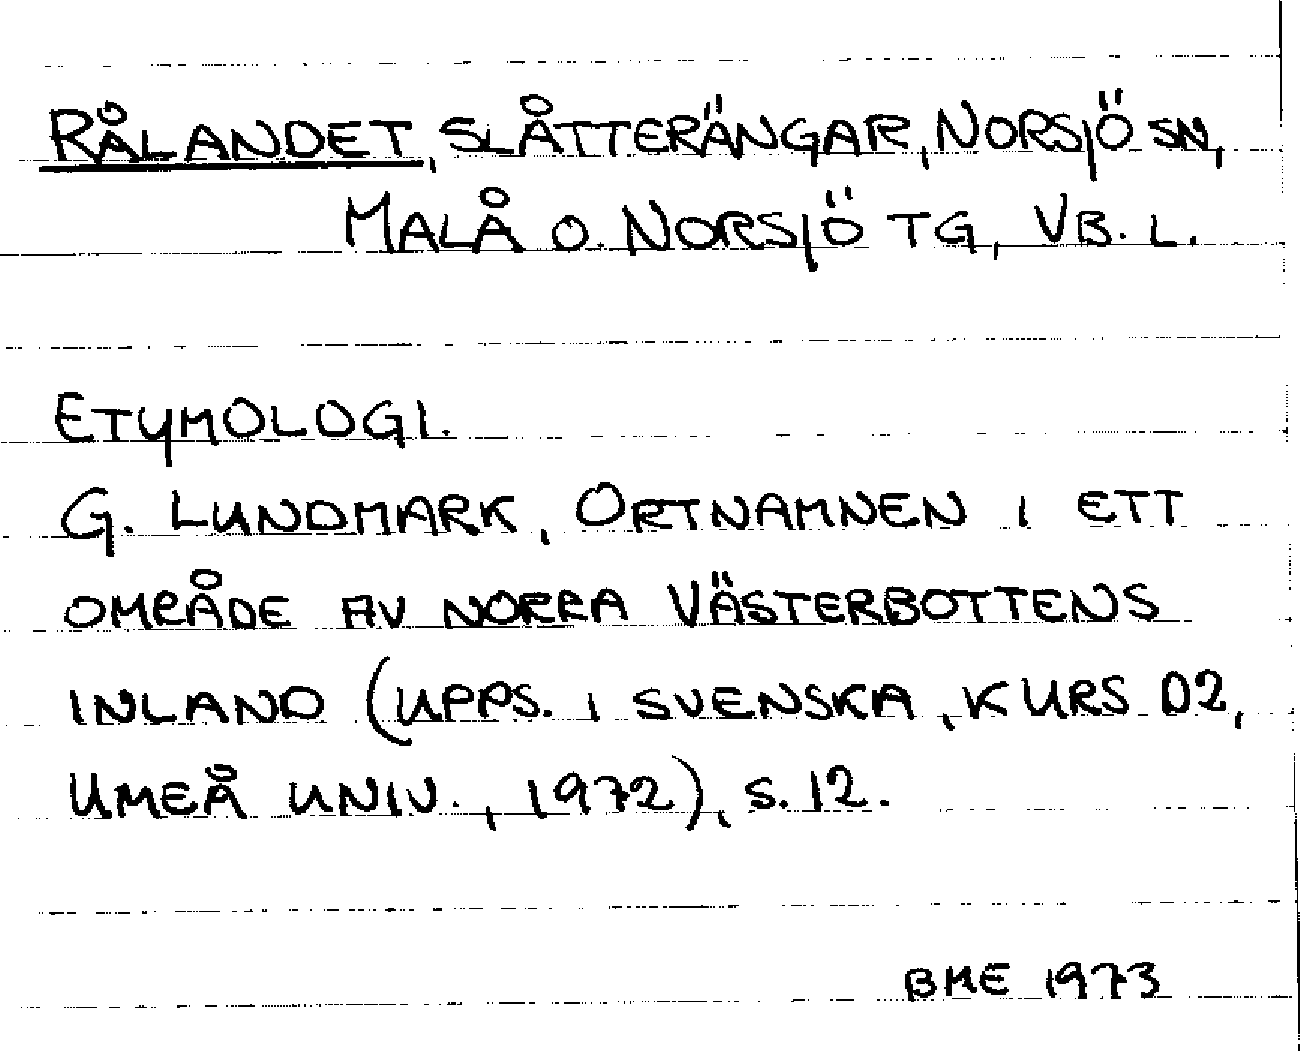 RÅLANDET, SLÅTTERÄNGAR, NORSJÖ SN,
MALÅ O. NORSJÖ TG, VB. L.
ETYMOLOGI.
G. LUNDMARK, ORTNAMNEN I ETT
OMRÅDE AV NORRA VÄSTERBOTTENS
INLAND (UPPS. I SVENSKA, KURS D2,
UMEÅ UNIV., 1972), S. 12.
BME 1973